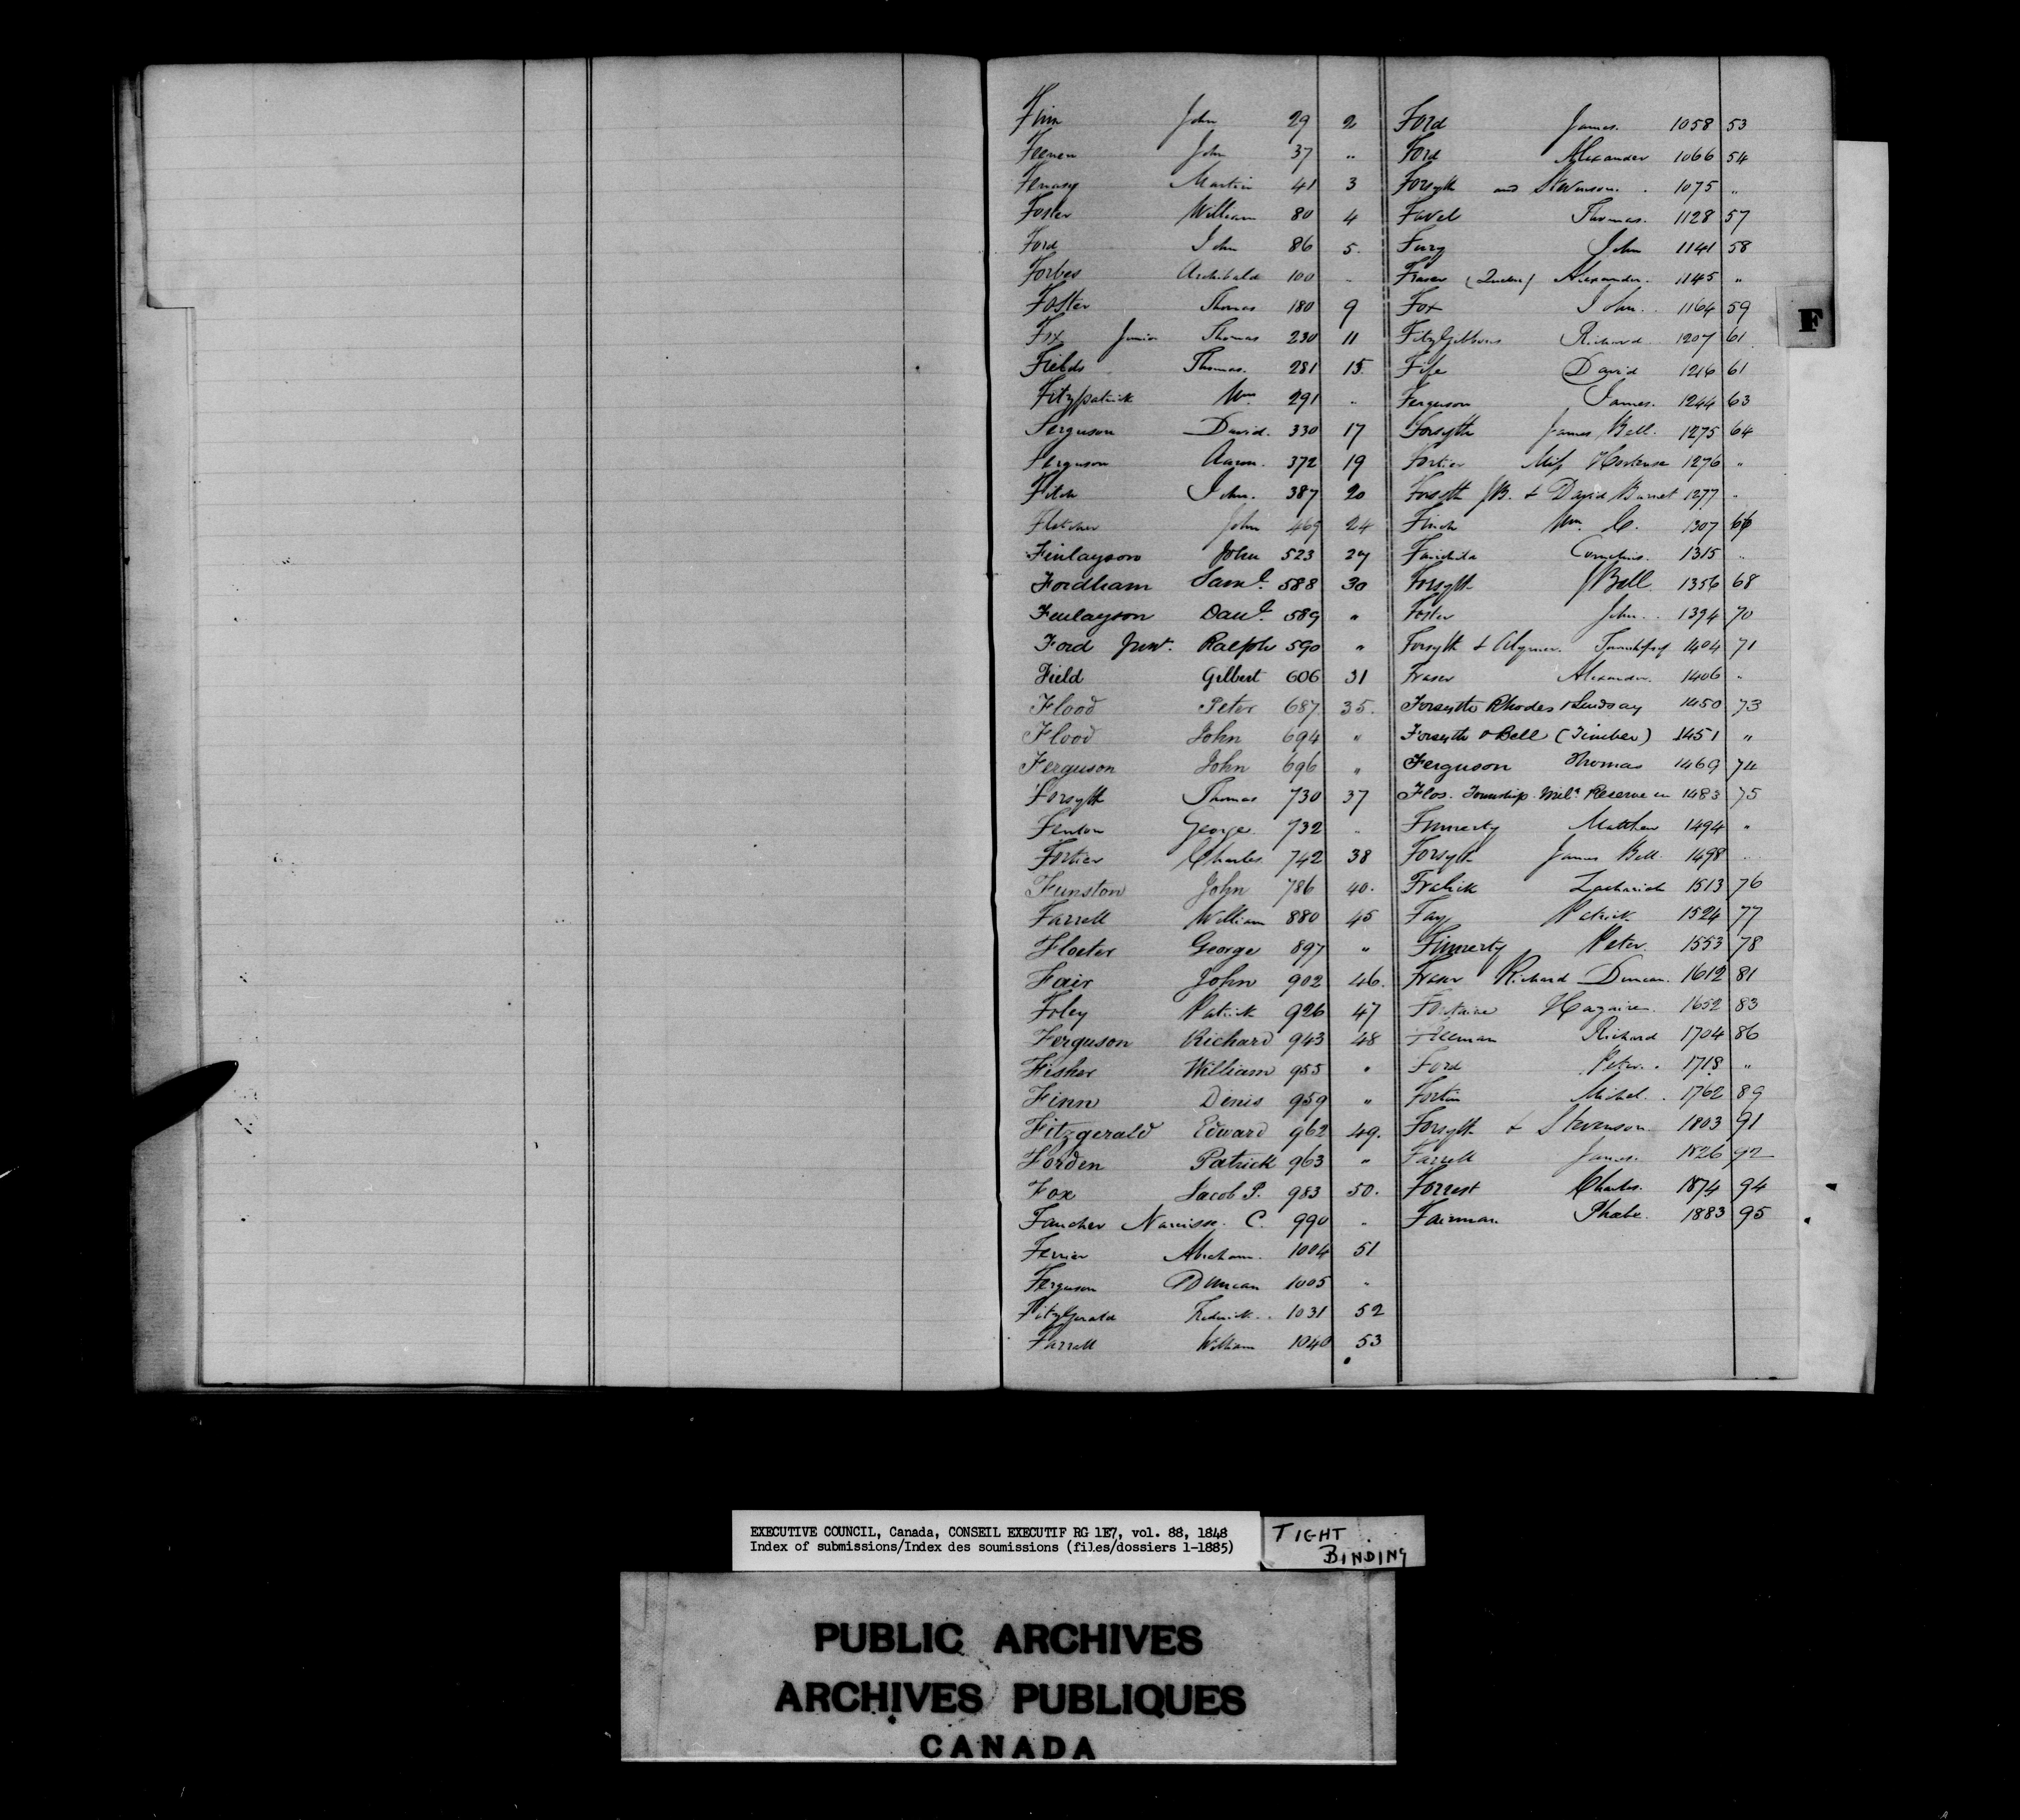 Finn John 29 2
John 37 "
Martin 41 3
Foster William 80 4
Ford John 86 5.
Forbes Archibald 100 "
Foster Thomas 180 9
Fox Junior Thomas 230 11
Fields Thomas. 281 15.
Fitzpatrick Wm 291 "
Ferguson David. 330 17
Ferguson Aaron. 372 19
Fitch John. 387 20
Fletcher John 469 24
Finlayson John 523 27
Fordham Saml. 588 30
Finlayson Danl. 589 "
Ford Junr. Ralph 590 "
Field Gilbert 606 31
Flood Peter 687 35.
Flood John 694 "
Ferguson John 696 "
Forsyth Thomas 730 37
Fenton George 732 "
Fortier Charles 742 38
Funston John 786 40.
Farrell William 880 45
Floeter George 897 "
Fair John 902 46.
Foley Patrick 926 47
Ferguson Richard 943 48
Fisher William 955 "
Finn Denis 959 "
Fitzgerald Edward 962 49.
Forden Patrick 963 "
Fox Jacob P. 983 50.
Faucher Narcisse. C. 990 "
Ferrier Abraham. 1004 51
Ferguson Duncan 1005 "
FitzGerald Frederick. 1031 52
Farrell William 1040 53
Ford James. 1058 53
Ford Alexander 1066 54
Forsyth and Stevenson. 1075 "
Favel Thomas. 1128 57
Fury John 1141 58
Fraser (Quebec) Alexander. 1145 "
Fox John. 1164 59
FitzGibbons Richard 1207 61
Fife David 1216 61
Ferguson James. 1244 63
Forsyth James Bell. 1275 64
Fortier Miss Hortense 1276 "
Forsyth JB. & David Burnet 1277 "
Finch Wm. C. 1307 66
Cornelius. 1315 "
Forsyth J Bell. 1356 68
Foster John. 1394 70
Forsyth & Aylmer. Township of 1404 71
Fraser Alexander. 1406 "
Forsyth Rhodes & Lindsay 1450 73
Forsyth & Bell (Timber) 1451 "
Ferguson Thomas 1469 74
Flos. Township. Mily Reserve in 1483 75
Finnerty Matthew 1494 "
Forsyth James Bell. 1498 "
Fralick Zachariah 1513 76
Fay Patrick 1524 77
Finnerty Peter. 1553 78
Fraser Richard Duncan. 1612 81
Fontaine 1652 83
Richard 1704 86
Ford Peter. 1718 "
Fortin Michel. 1762 89
Forsyth & Stevenson 1803 91
Farrell James. 1826 92
Forrest Charles. 1874 94
Fairman Phoebe. 1883 95
F
EXECUTIVE COUNCIL, Canada, CONSEIL EXECUTIF RG 1E7, vol. 88, 1848
Index of submissions/Index des soumissions (files/dossiers 1-1885)
TIGHT
BINDING
PUBLIC ARCHIVES
ARCHIVES PUBLIQUES
CANADA